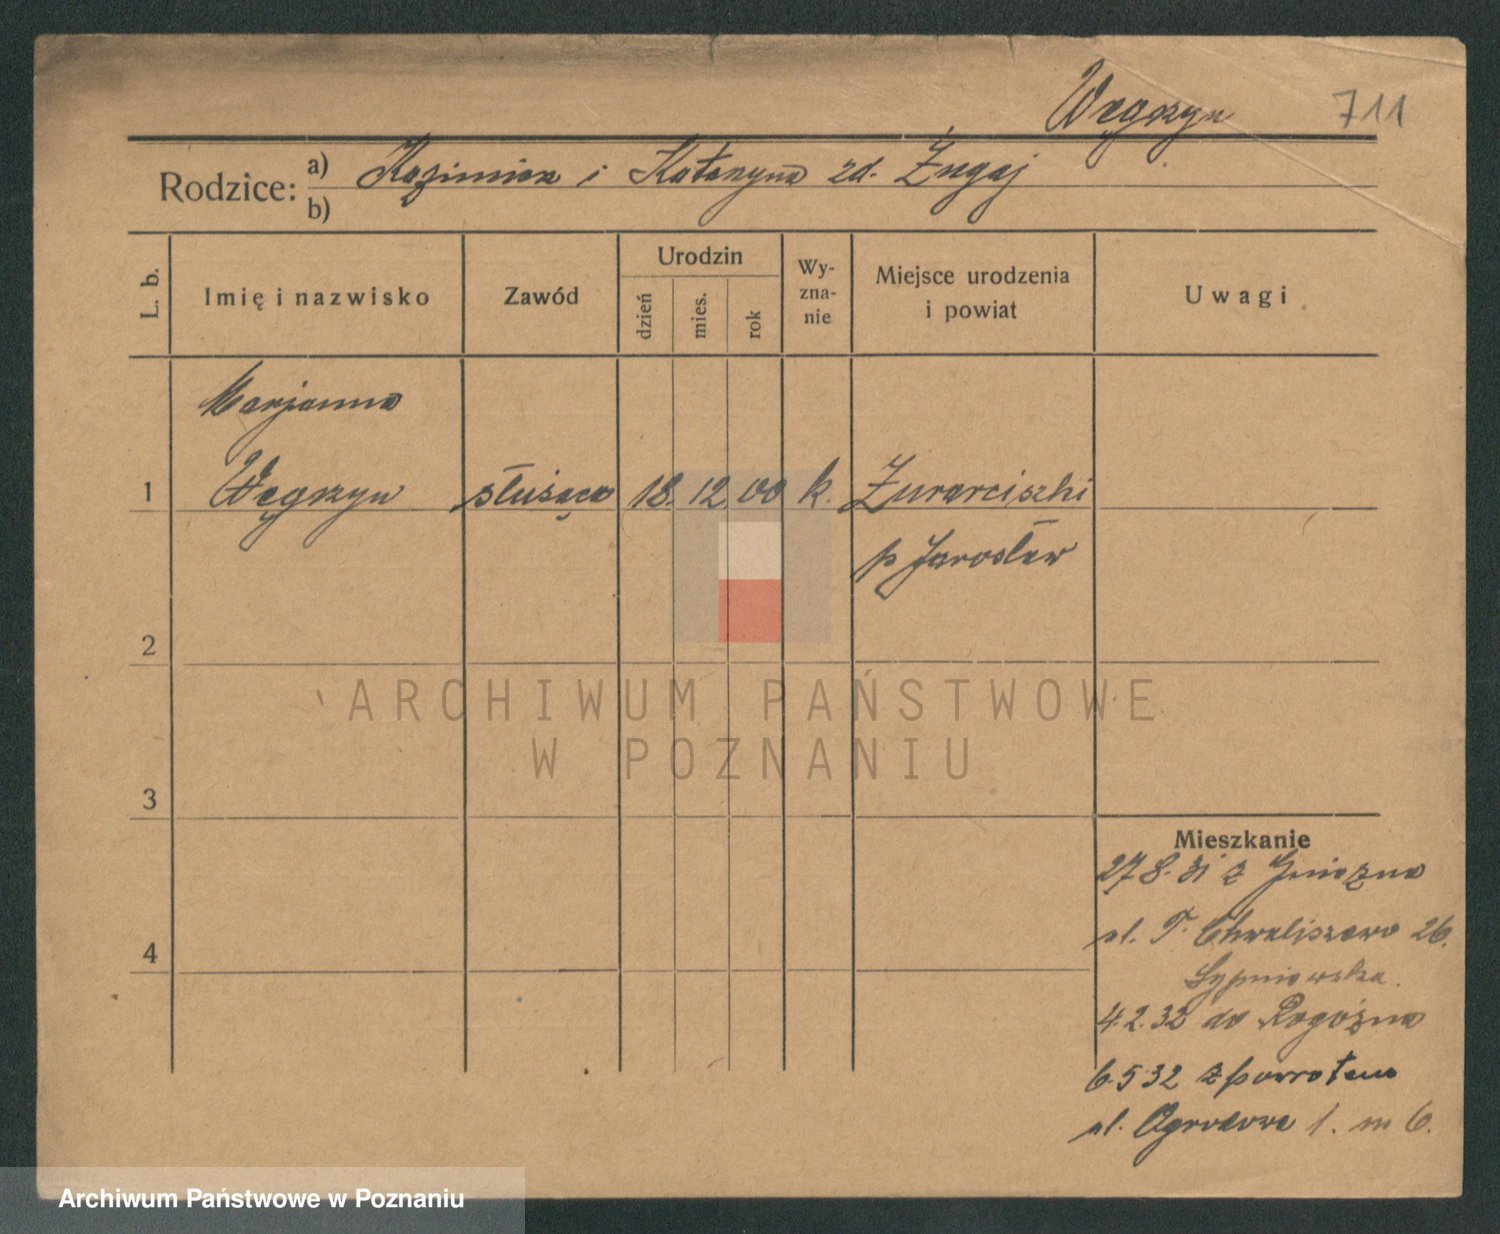 Węgrzyn 711
Rodzice: a) Kazimierz i Katarzyna zd. Żugaj
b)
L. b. Imię i nazwisko Zawód Urodzin dzień mies. rok Wy-zna-nie Miejsce urodzenia i powiat Uwagi
Marjanna
1 Węgrzyn służąca 18. 12. 00 k.
p Jarosław
2
3
4
Mieszkanie
27.8.31 z Gniezna
ul. T. Chwaliszewo 26.
Sypniewska.
4.2.32 do Rogoźna
6.5.32 z powrotem
ul. Ogrodowa 1. m 6.
ARCHIWUM PAŃSTWOWE
W POZNANIU
Archiwum Państwowe w Poznaniu